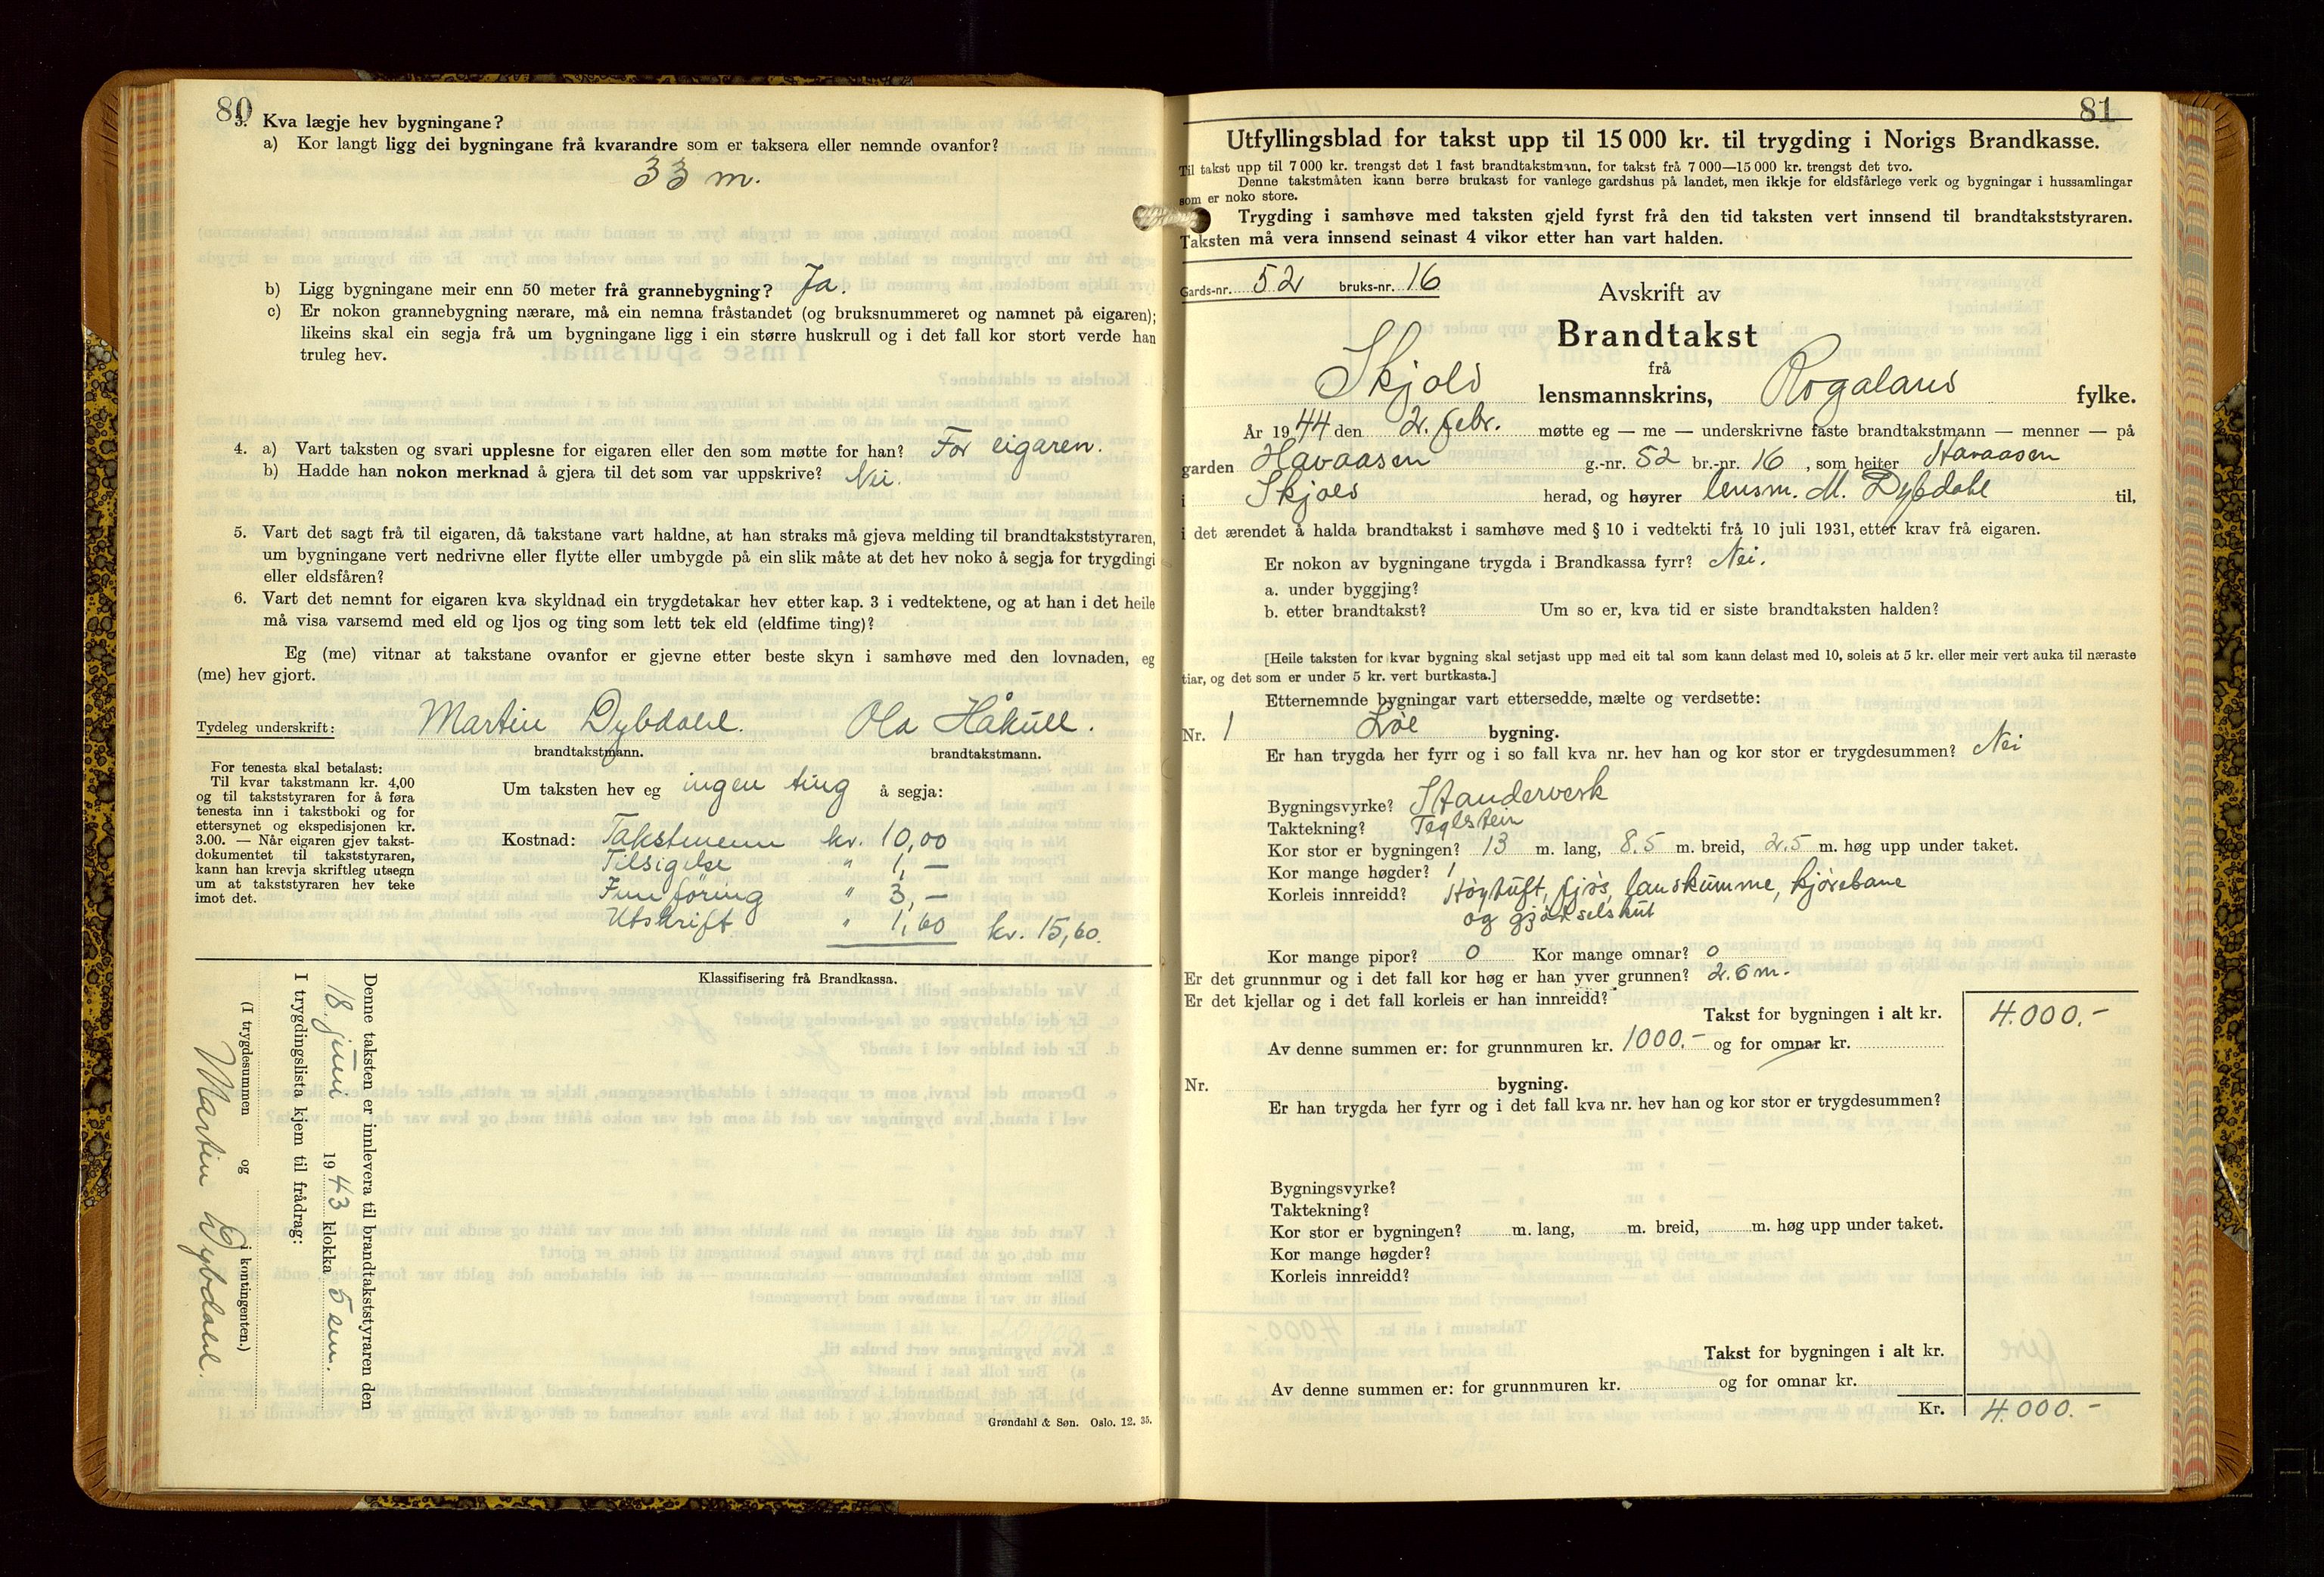 80
3. Kva lægje hev bygningane?
a) Kor langt ligg dei bygningane frå kvarandre som er taksera eller nemnde ovanfor?
33 m.
b) Ligg bygningane meir enn 50 meter frå grannebygning? Ja.
c) Er nokon grannebygning nærare, må ein nemna fråstandet (og bruksnummeret og namnet på eigaren);
likeins skal ein segja frå um bygningane ligg i ein større huskrull og i det fall kor stort verde han
truleg hev.
4. a) Vart taksten og svari upplesne for eigaren eller den som møtte for han? For eigaren.
b) Hadde han nokon merknad å gjera til det som var uppskrive? Nei.
5. Vart det sagt frå til eigaren, då takstane vart haldne, at han straks må gjeva melding til brandtakststyraren,
um bygningane vert nedrivne eller flytte eller umbygde på ein slik måte at det hev noko å segja for trygdingi
eller eldsfåren?
6. Vart det nemnt for eigaren kva skyldnad ein trygdetakar hev etter kap. 3 i vedtektene, og at han i det heile
må visa varsemd med eld og ljos og ting som lett tek eld (eldfime ting)?
Eg (me) vitnar at takstane ovanfor er gjevne etter beste skyn i samhøve med den lovnaden, eg
(me) hev gjort.
Tydeleg underskrift: Martin Dybdahl. Ola Håkull.
brandtakstmann. brandtakstmann.
For tenesta skal betalast:
Til kvar takstmann kr. 4,00
og til takststyraren for å føra
tenesta inn i takstboki og for
ettersynet og ekspedisjonen kr.
3.00. — Når eigaren gjev takst-
dokumentet til takststyraren,
kann han krevja skriftleg utsegn
um at takststyraren hev teke
imot det.
Um taksten hev eg ingen ting å segja:
Kostnad: Takstmenn kr. 10,00
Tilsigelse " 1,—
Innføring " 3,—
Utskrift " 1,60 kr. 15,60.
Klassifisering frå Brandkassa.
Denne taksten er innlevera til brandtakststyraren den
18. juni 1943 klokka 5 em.
I trygdingslista kjem til frådrag:
(I trygdesummen og i kontingenten.)
Martin Dybdahl.
Grøndahl & Søn. Oslo. 12. 35.
81
Utfyllingsblad for takst upp til 15 000 kr. til trygding i Norigs Brandkasse.
Til takst upp til 7 000 kr. trengst det 1 fast brandtakstmann, for takst frå 7 000—15 000 kr. trengst det tvo.
Denne takstmåten kann berre brukast for vanlege gardshus på landet, men ikkje for eldsfårlege verk og bygningar i hussamlingar
som er noko store.
Trygding i samhøve med taksten gjeld fyrst frå den tid taksten vert innsend til brandtakststyraren.
Taksten må vera innsend seinast 4 vikor etter han vart halden.
Gards-nr. 52 bruks-nr. 16
Avskrift av
Brandtakst
frå
Skjold lensmannskrins, Rogaland fylke.
År 1944 den 2. febr. møtte eg — me — underskrivne faste brandtakstmann — menner — på
garden Havaasen g.-nr. 52 br.-nr. 16, som heiter Havaasen
i Skjold herad, og høyrer lensm. M. Dybdahl til,
i det ærendet å halda brandtakst i samhøve med § 10 i vedtekti frå 10 juli 1931, etter krav frå eigaren.
Er nokon av bygningane trygda i Brandkassa fyrr? Nei.
a. under byggjing?
b. etter brandtakst? Um so er, kva tid er siste brandtaksten halden?
[Heile taksten for kvar bygning skal setjast upp med eit tal som kann delast med 10, soleis at 5 kr. eller meir vert auka til næraste
tiar, og det som er under 5 kr. vert burtkasta.]
Etternemnde bygningar vart ettersedde, mælte og verdsette:
Nr. 1 Løe bygning.
Er han trygda her fyrr og i so fall kva nr. hev han og kor stor er trygdesummen? Nei
Bygningsvyrke? Standerverk
Taktekning? Teglstein
Kor stor er bygningen? 13 m. lang, 8.5 m. breid, 2.5 m. høg upp under taket.
Kor mange høgder? 1
Korleis innreidd? Høyluft, fjøs, landkumme, kjørebane
og gjødselshus
Kor mange pipor? 0 Kor mange omnar? 0
Er det grunnmur og i det fall kor høg er han yver grunnen? 2.6 m.
Er det kjellar og i det fall korleis er han innreidd?
Takst for bygningen i alt kr. 4.000.-
Av denne summen er: for grunnmuren kr. 1000.- og for omnar kr.
Nr. bygning.
Er han trygda her fyrr og i det fall kva nr. hev han og kor stor er trygdesummen?
Bygningsvyrke?
Taktekning?
Kor stor er bygningen? m. lang, m. breid, m. høg upp under taket.
Kor mange høgder?
Korleis innreidd?
Takst for bygningen i alt kr.
Av denne summen er: for grunnmuren kr. og for omnar kr.
Kr. 4.000.-